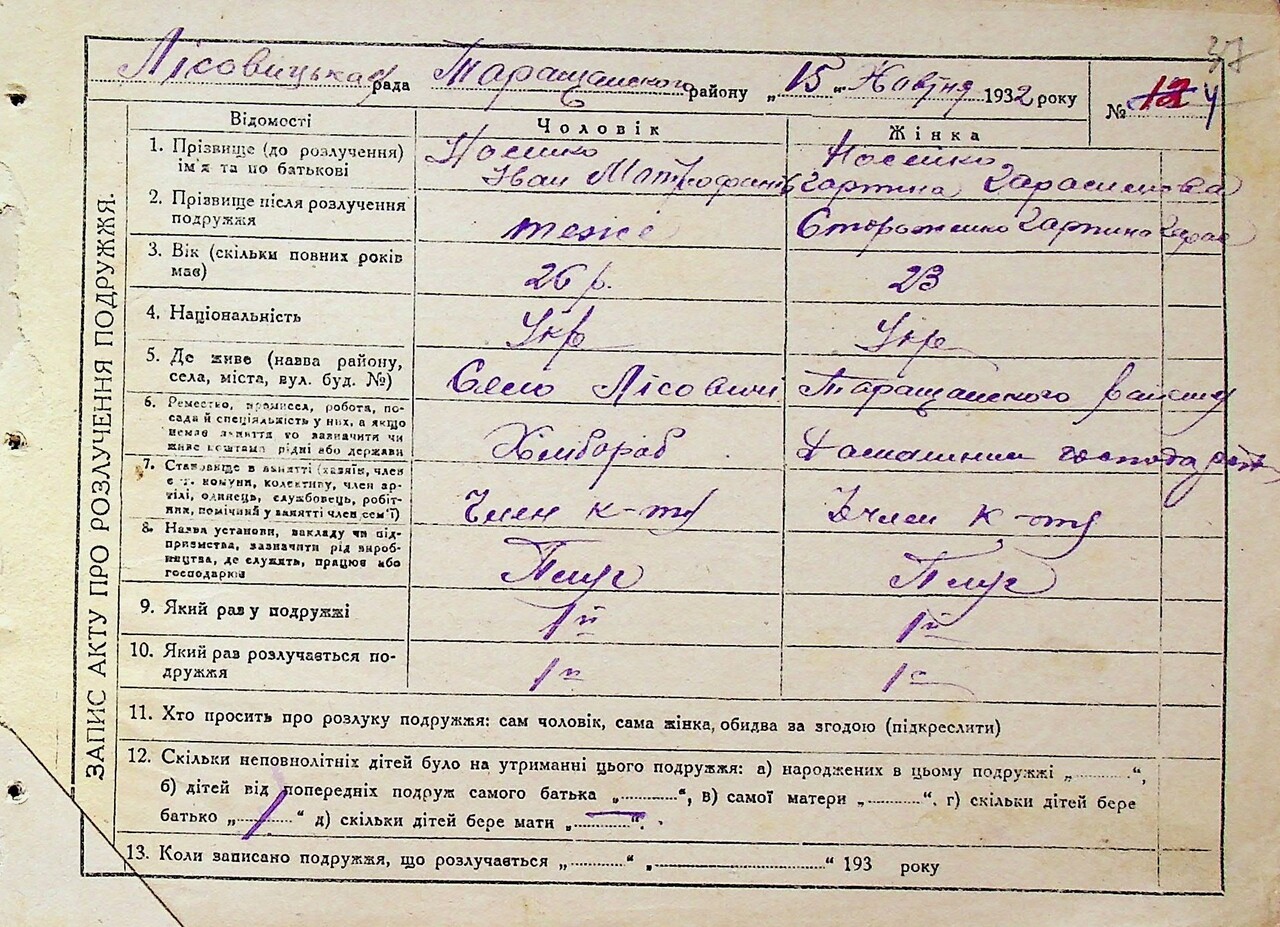 37
Лісовицька рада Таращанского району „15“ Жовтня 1932 року № 12 4
ЗАПИС АКТУ ПРО РОЗЛУЧЕННЯ ПОДРУЖЖЯ.
Відомості Чоловік Жінка
1. Прізвище (до розлучення) Носенко Носенко
ім'я та по батькові Иван Митрофанів
2. Прізвище після розлучення
подружжя тежє Стороженко
3. Вік (скільки повних років
має) 26 р. 23
4. Національність Укр Укр
5. Де живе (назва району,
села, міста, вул. буд. №) Село Лісовичі Таращанского району
6. Ремество, промисел, робота, по-
сада й спеціяльність у них, а якщо
немає заняття то зазначити чи
живе коштами рідні або держави Хлібораб
7. Становище в занятті (хазяїн, член
с.-г. комуни, колективу, член ар-
тілі, одинець, службовець, робіт-
ник, помічний у занятті член сем'ї) Член к-ту Член к-ту
8. Назва установи, закладу чи під-
приємства, зазначити рід вироб-
ництва, де служить, працює або
господарює Плуг Плуг
9. Який раз у подружжі 1й 1й
10. Який раз розлучається по-
дружжя 1й 1й
11. Хто просить про розлуку подружжя: сам чоловік, сама жінка, обидва за згодою (підкреслити)
12. Скільки неповнолітніх дітей було на утриманні цього подружжя: а) народжених в цьому подружжі „..........“,
б) дітей від попередніх подруж самого батька „..........“, в) самої матери „..........“. г) скільки дітей бере
батько „..........“ д) скільки дітей бере мати „..........“.
13. Коли записано подружжя, що розлучається „..........“ „..............................“ 193 року